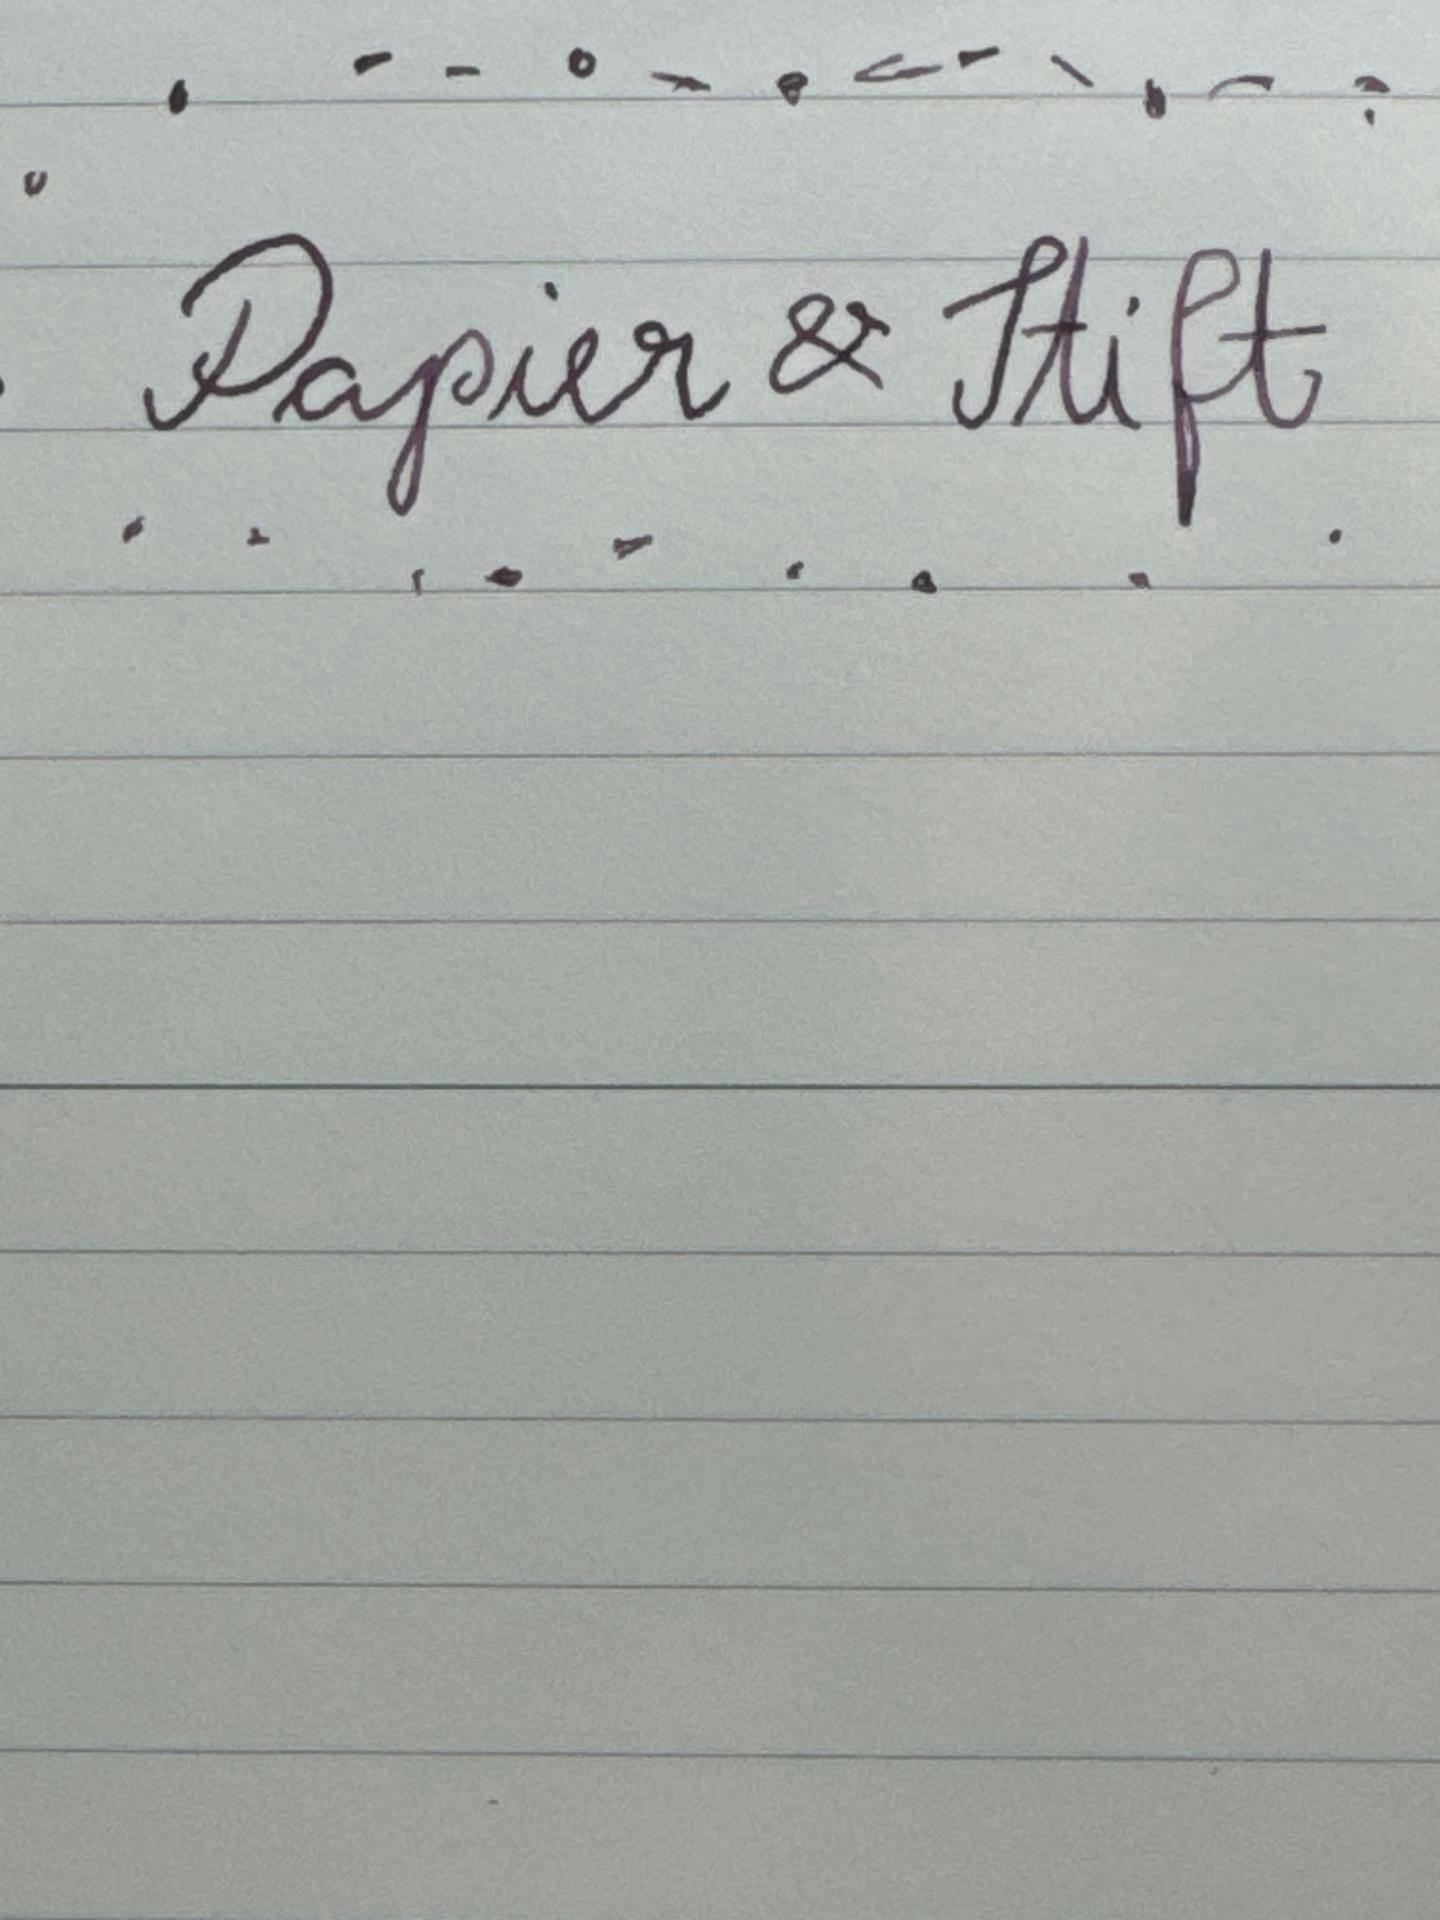 Papier & Stift